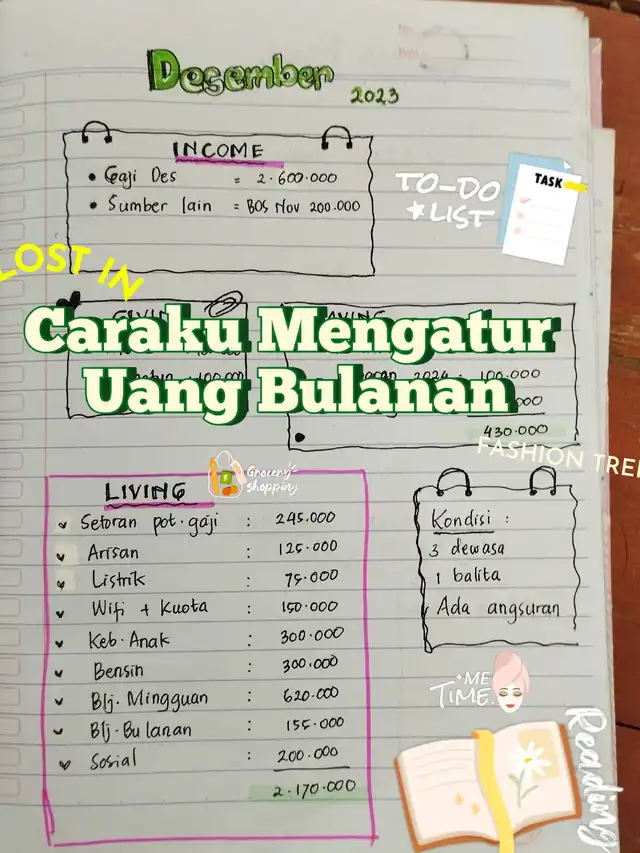 Desember
2023
INCOME
• Gaji Des = 2.600.000
• Sumber lain = BOS Nov 200.000
TO-DO
LIST
TASK
LOST IN
Caraku Mengatur
Uang Bulanan
2024 : 100.000
430.000
FASHION TRE
Grocery
Shopping
LIVING
Setoran pot. gaji : 245.000
Arisan : 125.000
Listrik : 75.000
Wifi + Kuota : 150.000
Keb. Anak : 300.000
Bensin : 300.000
Blj. Mingguan : 620.000
Blj. Bulanan : 155.000
Sosial : 200.000
2.170.000
Kondisi :
3 dewasa
1 balita
Ada angsuran
ME
TIME
Reading